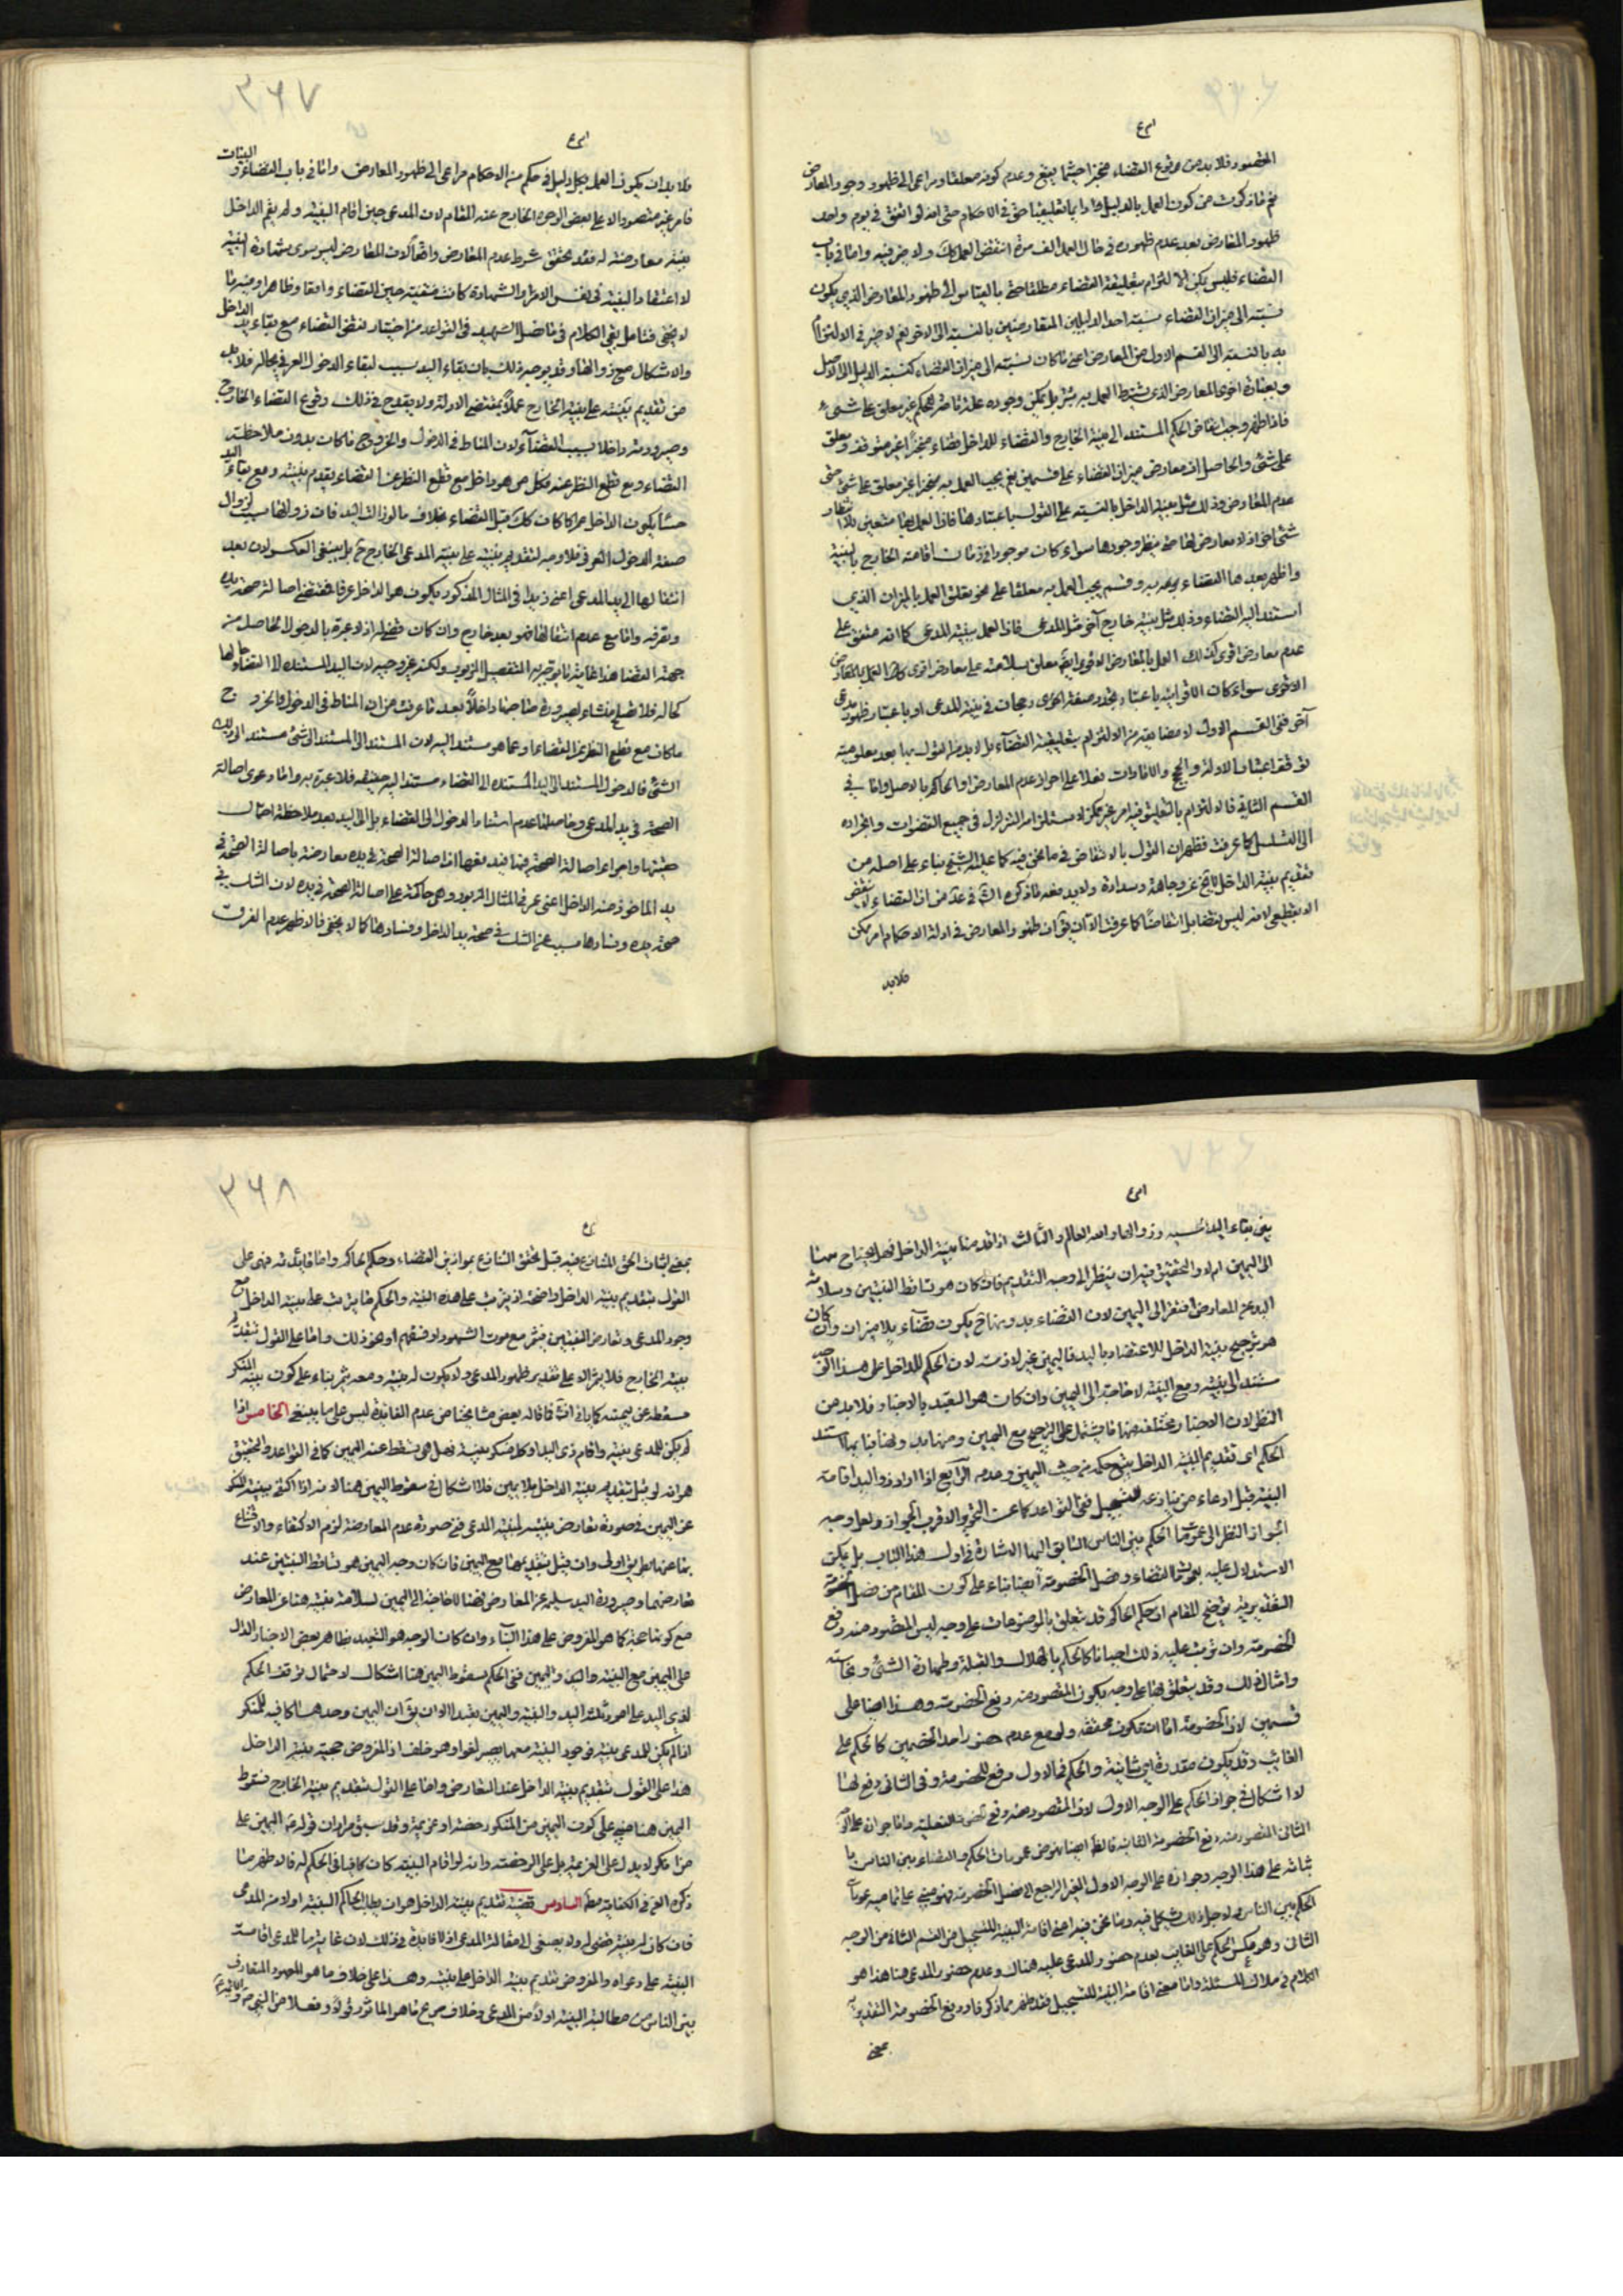 الخصوم فلا بد من وقوع القضاء منجزا حيثما يقع وعدم كونه معلقا ومراعى الى ظهور وجود المعارض
ظهور المعارض بعد عدم ظهوره في حال العمل الف مرة انتقض العمل كك ولا ضير فيه واما في باب
القضاء فليس يمكن الالتزام بتعليقية القضاء مطلقا حتى بالقياس الى ظهور المعارض الذي يكون
نسبته الى ميزان القضاء نسبة احد الدليلين المتعارضين بالنسبة الى الاخر نعم لا ضير في الالتزام
به بالنسبة الى القسم الاول من المعارض اعني ما كان نسبته الى ميزان القضاء كنسبة الدليل الى الاصل
فاذا ظهر وجب انتقاض الحكم المستند الى بينة الخارج والقضاء للداخل قضاء منجزا غير متوقف ومعلق
على شئ والحاصل ان معارض ميزان القضاء على قسمين قسم يجب العمل به منجزا غير معلق على شئ حتى
عدم المعارض وذلك مثل بينة الداخل بالنسبة على القول باعتبارها فاذا العمل بها متعين بلا انتظار
شئ اخر اذ لا معارض لها حتى ينتظر وجودها سواء كان موجودا في زمان اقامة الخارج بالبينة
واظهر بعدها القضاء بموجبه وقسم يجب العمل به معلقا على نحو تعلق العمل بالميزان الذي
استند اليه القضاء وذلك مثل بينة خارج آخر مثل المدعي فاذا العمل ببينة المدعي كما انه متفق على
عدم معارض اقوى كذلك العمل بالمعارض الاقوى ايضا معلق بسلامته على معارض اقوى
الاقوى سواء كان الاقوائية باعتبار تجدد صفة اخرى ورجحان في بينة المدعي او باعتبار ظهور مدعي
آخر ففي القسم الاول لا مضايقة من الالتزام بتعليقية القضاء بل لا بد من القول بها بعد معلومية
توقف اعتبار الادلة والحجج والامارات بقدا على احراز عدم المعارض او الحاكم بالاصل واما في
القسم الثاني فالالتزام بالتعليق فيه امر غير ممكن لاستلزامه التزلزل في جميع القضوات وانجراره
الى التسلسل كما عرفت فظهر ان القول بالانتقاض في ما نحن فيه كما عليه الشيخ بناء على اصله من
تقديم بينة الداخل لا يخ عن وجاهة وسدادة ولا يدفعه ما ذكره الشهيد في عدّ من ان القضاء لا ينقض
الا بقطعي لانه ليس نقضا بل انتقاضا كما عرفت الآن يق ان ظهور المعارض في ادلة الاحكام امر ممكن
فلا بد
٣٦٧
فلا بد ان يكون العمل بكل دليل في حكم من الاحكام مراعى الى ظهور المعارض واما في باب القضاء والبينات
فامر غير متصور الا على بعض الوجوه الخارج عنه المقام لان المدعي حين اقام البينة ولم يقم الداخل
بينة معارضة له فقد تحقق شرط عدم المعارض واقعا لان المعارض ليس سوى شهادة البينة
لا اعتقاد البينة في نفس الامر والشهادة كانت منتفية حين القضاء واقعا وظاهرا وفيه ما
لا يخفى فتامل بقي الكلام في ما فصل الشهيد في القواعد من اختيار نقض القضاء مع بقاء يد الداخل
والاشكال مع زوالها وقد يوجه ذلك بان بقاء اليد سبب لبقاء الدخول العرفي بحاله فلا بد
من تقديم بينته على بينة الخارج عملا بمقتضى الادلة ولا يقدح في ذلك وقوع القضاء للخارج
وصيرورته داخلا بسبب القضاء لان المناط في الدخول والخروج ما كان بدون ملاحظة
القضاء ومع قطع النظر عنه فكل من هو داخل مع قطع النظر عن القضاء يقدم بينته ومع بقاء اليد
حسا يكون الداخل عمرا كما كان كك قبل القضاء بخلاف ما لو زالت اليد فان زوالها سبب لزوال
صفة الدخول العرفي فلا وجه لتقديم بينته على بينة المدعي الخارج ح بل ينبغي العكس لان بعد
انتقالها الى يد المدعي اعني زيدا في المثال المذكور يكون هو الداخل عرفا فمقتضى اصالة صحة يده
وتصرفه واما مع عدم انتقالها فهو بعد خارج وان كان قضي له اذ لا عبرة بالدخول الحاصل من
جهة القضا هذا غاية ما يوجه به التفصيل المزبور ولكنه غير وجيه لان اليد المستندة الى القضاء حالها
كحاله فلا تصلح منشاء لصيرورة صاحبها داخلا بعد ما عرفت من ان المناط في الدخول والخروج
ما كان مع قطع النظر عن القضاء وعما هو مستند اليه لان المستند الى المستند الى شئ مستند الى ذلك
الشئ فالدخول المستند الى اليد المستندة الى القضاء مستند اليه حقيقة فلا عبرة به واما دعوى اصالة
الصحة في يد المدعي وحاصلها عدم استناد الدخول الى القضاء بل الى اليد بعد ملاحظة احتمال
حقيتها واجراء اصالة الصحة فيها فيدفعها ان اصالة الصحة في يده معارضة باصالة الصحة في
يد الماخوذ منه الداخل اعني عمر في المثال المزبور وهي حاكمة على اصالة الصحة في يده لان الشك في
صحة يده وفسادها مسبب عن الشك في صحة يد الداخل وفسادها كما لا يخفى فالاظهر عدم الفرق
بين بقاء اليد الحسية وزوالها والله العالم والثالث اذا قدمنا بينة الداخل فهل يحتاج معها
الى اليمين ام لا والتحقيق فيه ان ينظر الى وجه التقديم فان كان هو تساقط البينتين وسلامة
اليد عن المعارض افتقر الى اليمين لان القضاء بدونها ح يكون قضاء بلا ميزان وان كان
هو ترجيح بينة الداخل للاعتضاد باليد فاليمين غير لازمة لان الحكم للداخل على هذا الوجه
مستند الى بينته ومع البينة لا حاجة الى اليمين وان كان هو التعبد بالاخبار فلا بد من
النظر لان الاخبار مختلفة منها ما يشتمل على الترجيح مع اليمين ومنها بدونها فايما استند
الحكم اي تقديم بينة الداخل يتبع حكمه من حيث اليمين وعدمه الرابع اذا اراد ذو اليد اقامة
البينة قبل ادعاء من ينازعه للتسجيل ففي القواعد كما عن التحرير الاقرب الجواز ولعل وجه
الجواز النظر الى عموم ما الحكم بين الناس السابق اليها الاشارة في اول هذا الباب بل يمكن
الاستدلال عليه بعموم القضاء وفصل الخصومة ايضا بناء على كون المقام من فصل الخصومة
التقديرية توضيح المقام ان حكم الحاكم قد يتعلق بالموضوعات على وجه ليس المقصود منه رفع
الخصومة وان ترتب عليه ذلك احيانا كالحكم بالهلال والقبلة وطهارة الشئ ونجاسته
وامثال ذلك وقد يتعلق بها على وجه يكون المقصود منه رفع الخصومة وهذا ايضا على
قسمين لان الخصومة اما ان تكون محققة ولو مع عدم حضور احد الخصمين كالحكم على
الغائب وقد يكون مقدرة اي شانية والحكم في الاول رفع للخصومة وفي الثاني دفع لها
لا اشكال في جواز الحكم على الوجه الاول لان المقصود منه رفع الخصومة الفعلية واما جوازه على الوجه
الثاني المقصود منه دفع الخصومة الشانية فالظ ايضا نهوض عمومات الحكم والقضاء بين الناس با
ثباته على هذا الوجه وجوازه على الوجه الاول الغير الراجع الى فصل الخصومة فهو مبني على تمامية عمومات
الحكم بين الناس ولاجل ذلك يشكل فيه وما نحن فيه اعني اقامة البينة للتسجيل من القسم الثاني من الوجه
الثاني وهو عكس الحكم على الغائب بعدم حضور المدعى عليه هناك وعدم حضور المدعي هنا هذا هو
الكلام في ملاك المسئلة واما معنى اقامة البينة للتسجيل فقد ظهر مما ذكرنا ودفع الخصومة التقديرية
بمعنى
٣٦٨
بمعنى اثبات الحق المتنازع فيه قبل تحقق التنازع بموازين القضاء وحكم الحاكم واما فائدته فهي على
القول بتقديم بينة الداخل واضحة اذ يترتب على هذه البينة والحكم ما يترتب على بينة الداخل مع
وجود المدعي وتعارض البينتين فيثمر مع موت الشهود او فسقهم او نحو ذلك واما على القول بتقديم
بينة الخارج فلا يثمر الا على تقدير ظهور المدعي ولا يكون له بينة ومعه يثمر بناء على كون بينة المنكر
مسقطة عن يمينه كما ياتي انشاء فما قاله بعض مشايخنا من عدم الفائدة ليس على ما ينبغي الخامس اذا
لم يكن للمدعي بينة واقام ذي اليد او كل منكر بينة فهل هي تسقط عنه اليمين كما في القواعد والتحقيق
هو انه لو قيل بتقديم بينة الداخل بلا يمين فلا اشكال في سقوط اليمين هنا لانه اذا اكتفى ببينة المنكر
عن اليمين في صورة تعارض بينته لبينة المدعي ففي صورة عدم المعارضة لزم الاكتفاء والاقتناع
بها عنها بطريق اولى وان قيل بتقديمها مع اليمين فان كان وجه اليمين هو تساقط البينتين عند
تعارضهما وصيرورة اليد سليمة عن المعارض فهنا لا حاجة الى اليمين لسلامة بينته هنا عن المعارض
مع كونها حجة كما هو المفروض على هذا البناء وان كان الوجه هو التعبد بظاهر بعض الاخبار الدال
على اليمين مع البينة واليد واليمين ففي الحكم بسقوط اليمين هنا اشكال لاحتمال توقف الحكم
لذي اليد على امور ثلثة اليد والبينة واليمين تعبدا الا ان يق ان اليمين وحدها كافية للمنكر
اذا لم يكن للمدعي بينة فوجود البينة معها يصير لغوا وهو خلف اذ المفروض حجية بينة الداخل
هذا على القول بتقديم بينة الداخل عند التعارض واما على القول بتقديم بينة الخارج فسقوط
اليمين هنا مبني على كون اليمين من المنكر رخصة او عزيمة وقد سبق مرارا ان قوله ع اليمين على
من انكر لا يدل على العزيمة بل على الرخصة وانه لو اقام البينة كان كافيا في الحكم له فالاظهر ما
ذكره العلامة في الكفاية مط السادس قضية تقديم بينة الداخل هو ان يطالب الحاكم البينة اولا منه المدعي
فان كان له بينة قضى له ولا يصغى الى مقالة المدعي اذ لا فائدة في ذلك لان غاية ما للمدعي اقامة
البينة على دعواه والمفروض تقديم بينة الداخل على بينته وهذا على خلاف ما هو المعهود المتعارف
بين الناس من مطالبة البينة اولا من المدعي وخلاف صريح ما هو الماثور قولا وفعلا من النبي ص والائمة ع